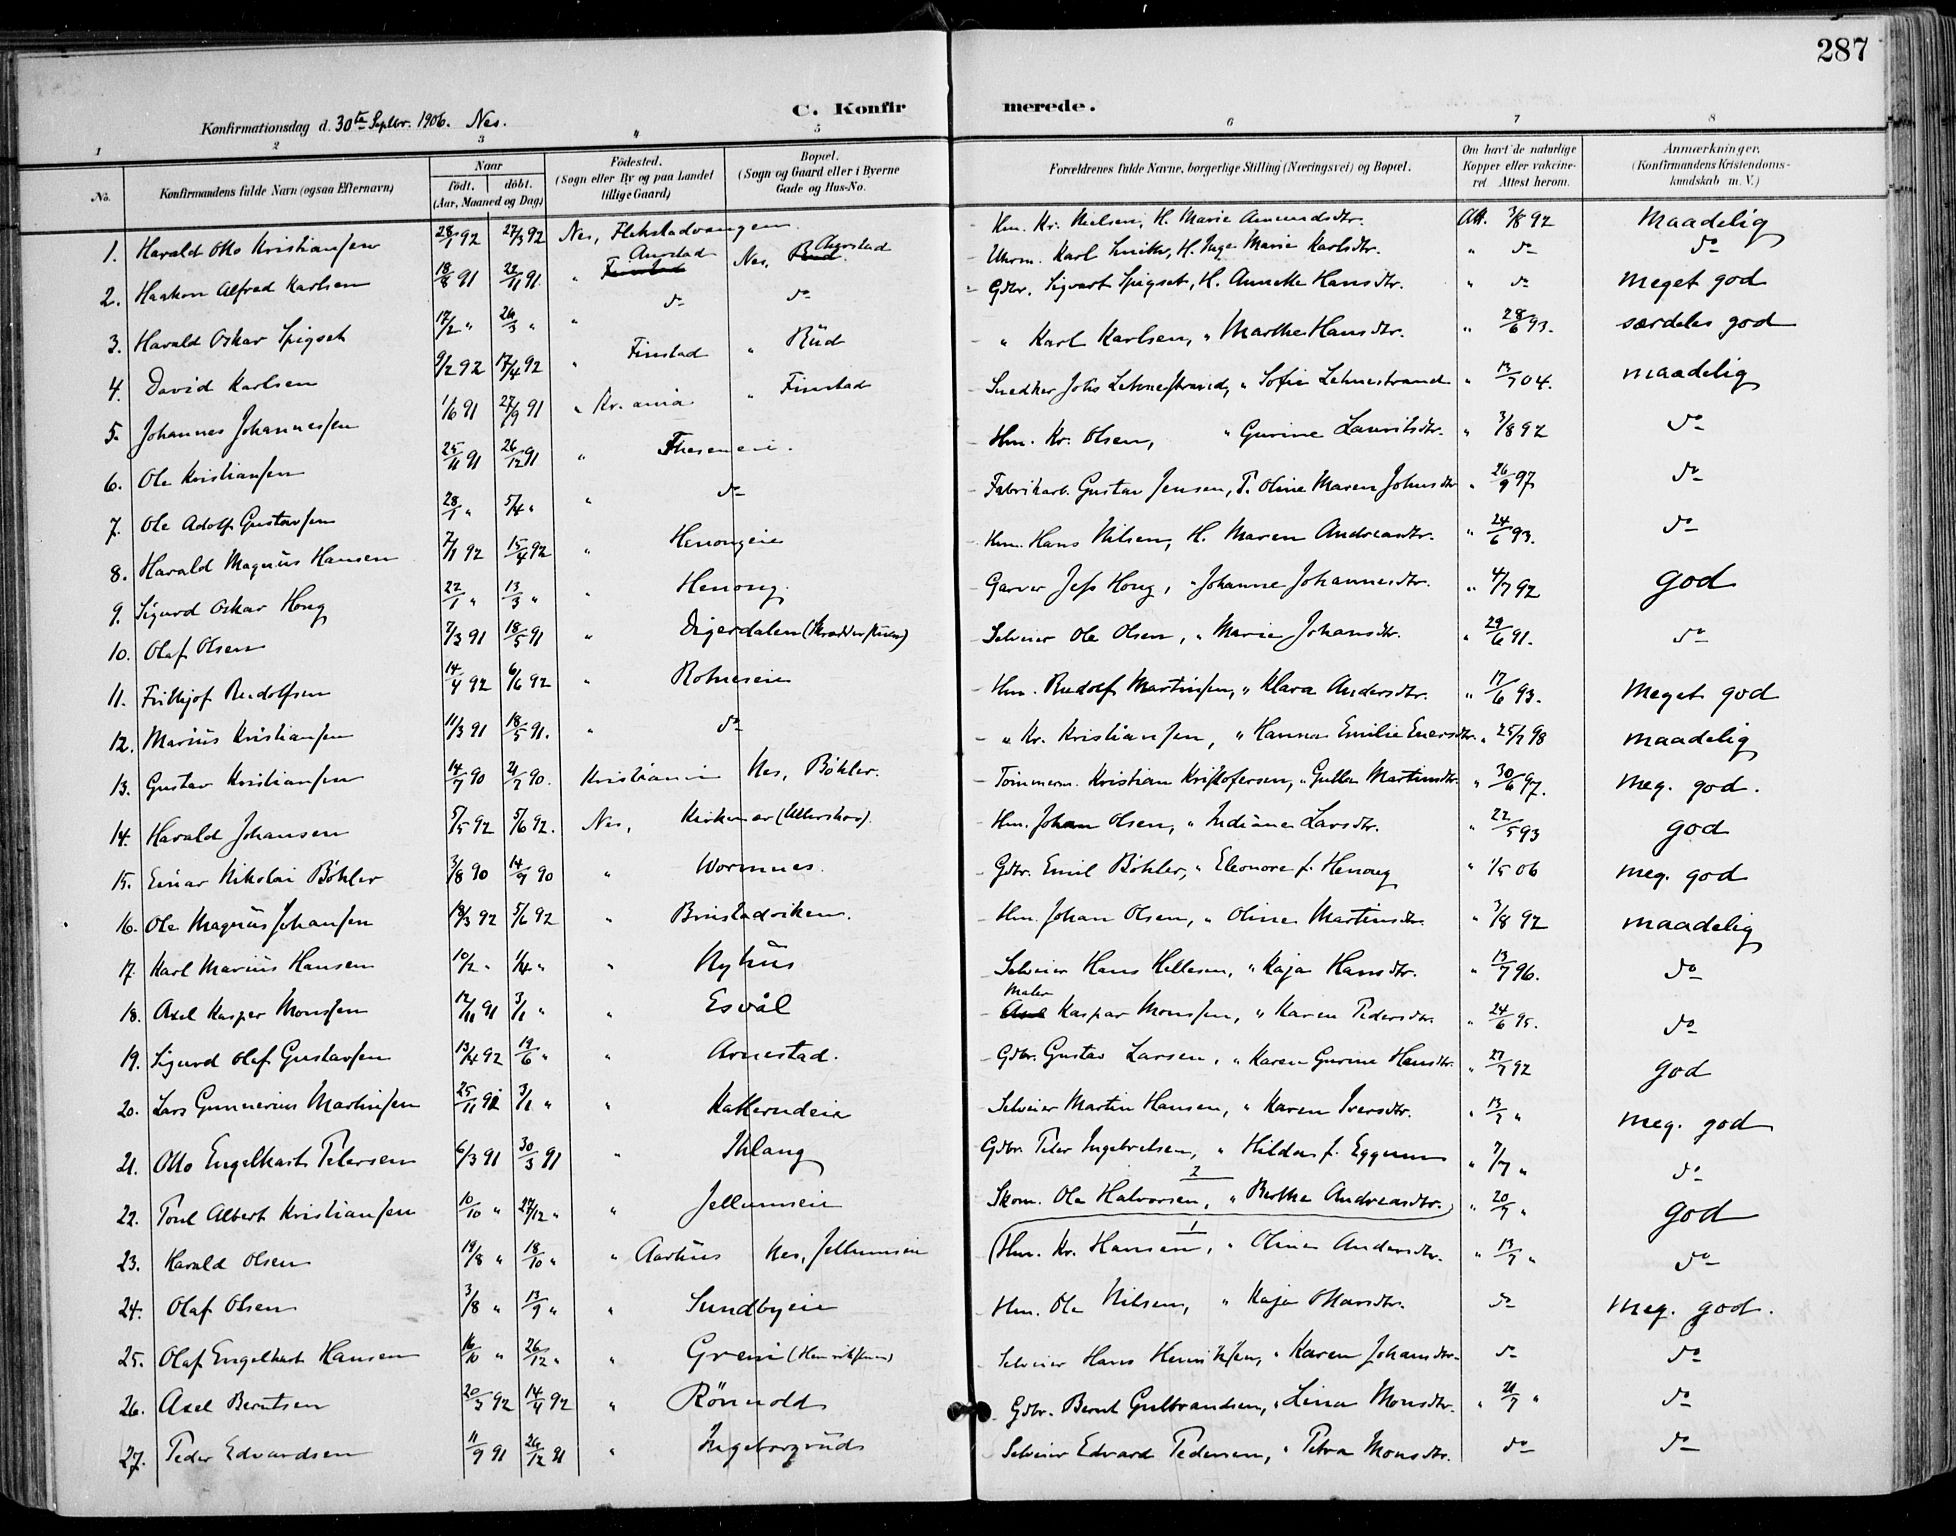 287
C. Konfirmerede.
Konfirmationsdag d. 30te Septbr. 1906. Nes.
1 2 3 4 5 6 7 8
No. Konfirmandens fulde Navn (ogsaa Efternavn) Naar født. døbt. (Aar, Maaned og Dag) Fødested. (Sogn eller By og paa Landet tillige Gaard) Bopæl. (Sogn og Gaard eller i Byerne Gade og Hus-No. Forældrenes fulde Navne, borgerlige Stilling (Næringsvei) og Bopæl. Om havt de naturlige Kopper eller vakcineret. Attest herom. Anmærkninger. (Konfirmandens Kristendomskundskab m. V.)
1. Harald Otto Kristiansen 28/1 92 27/3 92 Nes, Flekstadvangen - Hm. Kr. Nielsen, H. Marie Amundsdtr. Att. 3/8 92 Maadelig
2. Haakon Alfred Karlsen 18/8 91 22/11 91. " Aurstad Nes, Aurstad - Murm. Karl , H. Inge Marie Karlsdtr. " do do
3. Harald Oskar Spigset 17/2 " 26/3 " " do do - Gdbr. Sigvart Spigset, H. Annette Hansdtr. " do Meget god
4. David Karlsen 9/2 92 17/4 92 " Finstad " Rud - " Karl Karlsen, " Marthe Hansdtr. " 28/6 93. særdeles god
5. Johannes Johannessen 1/6 91 27/9 91 " Kr.ania " Finstad Snedker Johs Lehnestrand, " Sofie Lehnestrand " 13/7 04. maadelig
6. Ole Kristiansen 25/11 91 26/12 91 " Theseneie. - Hm. Kr. Olsen, " Gurine Lauritsdtr. " 3/8 92 do
7. Ole Adolf Gustavsen 28/1 " 5/4 " " do - Fabrikarb. Gustav Jensen, P. Oline Maren Johnsdtr " 26/9 97 do
8. Harald Magnus Hansen 7/1 92 15/4 92 " Henongeie - Hm. Hans Nilsen, H. Maren Andreasdtr. " 24/6 93. do
9. Sigurd Oskar Hong 22/1 " 13/3 " " Henong. - Garver Jess Hong, " Johanne Johannesdtr. " 4/7 92 god
10. Olaf Olsen 7/3 91 18/5 91 " Digerdalen - Selveier Ole Olsen, " Marie Johansdtr. " 29/6 91. do
11. Frithjof Rudolfsen 14/4 92 6/6 92 " Rotneseie - Hm. Rudolf Martinsen, " Klara Andersdtr. " 17/6 93. Meget god
12. Marius Kristiansen 11/3 91 18/5 91. " do - " Kr. Kristiansen, " Hanna Emilie Enersdtr. " 25/7 98 maadelig
13. Gustav Kristiansen 14/7 90 21/7 90. Kristiania Nes, Bøhler. - Tømmerm. Kristian Kristofersen, " Martinsdtr. " 30/6 97. Meg. god.
14. Harald Johansen 5/5 92 5/6 92. Nes, - Hm. Johan Olsen, " Indiane Larsdtr. " 22/5 93 god
15. Einar Nikolai Bøhler 3/8 90 14/9 90 " Wormnes. - Gdbr. Emil Bøhler, " Eleonore f. Henong " 1/5 06 meg. god
16. Ole Magnus Johansen 13/3 92 5/6 92 " Brustadviken. - Hm. Johan Olsen, " Oline Martinsdtr. " 3/8 92 maadelig
17. Karl Marius Hansen 10/2 " 1/4 " " Nyhus - Selveier Hans Hellesen, " Kaja Hansdtr. " 13/7 96. do
18. Axel Kasper Monssen 12/11 91 3/1 " " Esvål - Maler Kaspar Monssen, " Karen Pedersdtr. " 24/6 95. do
19. Sigurd Olaf Gustavsen 13/4 92 19/6 " " Arnestad. - Gdbr. Gustav Larsen, " Karen Gurine Hansdtr. " 27/7 92 god
20. Lars Gunnerius Martinsen 25/11 91 3/1 " " - Selveier Martin Hansen, " Karen Iversdtr. " 13/7 " meg. god
21. Otto Engelhart Petersen 6/3 91 30/3 91 " Ihlang Gdbr. Peter Ingebretsen, " Hilda f. Eggum " 7/7 " do
22. Toril Albert Kristiansen 10/10 " 27/12 " " Jellumseie 2 Skom. Ole Halvorsen, " Berthe Andreasdtr. " 20/7 " god
23. Harald Olsen 19/8 " 18/10 " " Aarhus Nes, Jellumseie 1 (Hm. Kr. Hansen, " Oline Andersdtr. " 13/7 " do
24. Olaf Olsen 3/8 " 13/9 " " Sundbyeie - Hm. Ole Nilsen, " Kaja Olsdtr. do meg. god.
25. Olaf Engelhart Hansen 16/10 " 26/12 " " Greni - Selveier Hans Henriksen, " Karen Johansdtr. do do
26. Axel Berntsen 20/3 92 14/4 92 " Rönnold - Gdbr. Bernt Gulbrandsen, " Lina Monsdtr. " 21/7 " do
27. Peder Edvardsen 11/9 91 26/12 91 " Ingeborgrud - Selveier Edvard Pedersen, " Petra Monsdtr. do do